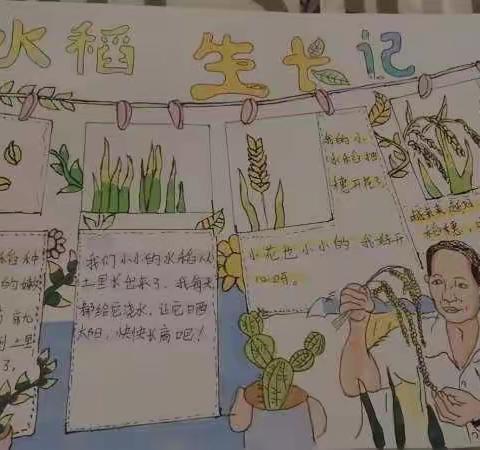 水稻 生长记
稻种
的嫩
土里
了，
我们小小的水稻从
土里长出来了，我每天
都给它浇水，让它日晒
太阳，快快长高吧！
我的小
水稻抽
穗开花了
小花也小小的 我好开
心呀。